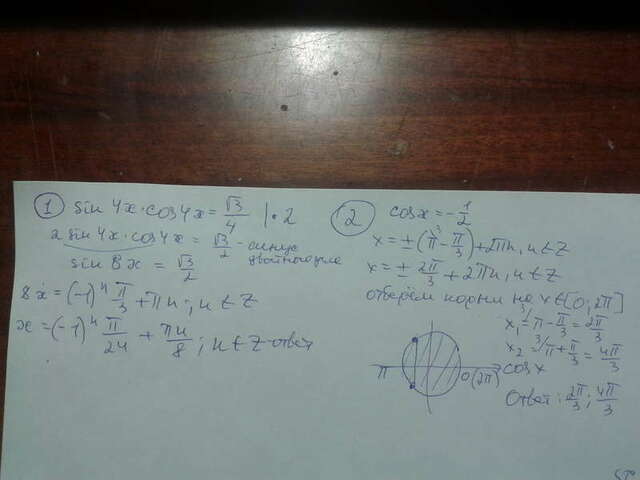 ① sin 4x·cos4x = √3/4 |·2
2 sin 4x·cos4x = √3/2 - синус двойного угла
sin 8x = √3/2
8x = (-1)ⁿ π/3 + πn; n ∈ Z
x = (-1)ⁿ π/24 + πn/8; n ∈ Z - ответ
② cosx = -1/2
x = ±(π - π/3) + 2πn, n ∈ Z
x = ± 2π/3 + 2πn, n ∈ Z
отберём корни на x ∈ [0; 2π]
x₁ = π - π/3 = 2π/3
x₂ = π + π/3 = 4π/3
π 0(2π) cosx
Ответ: 2π/3; 4π/3